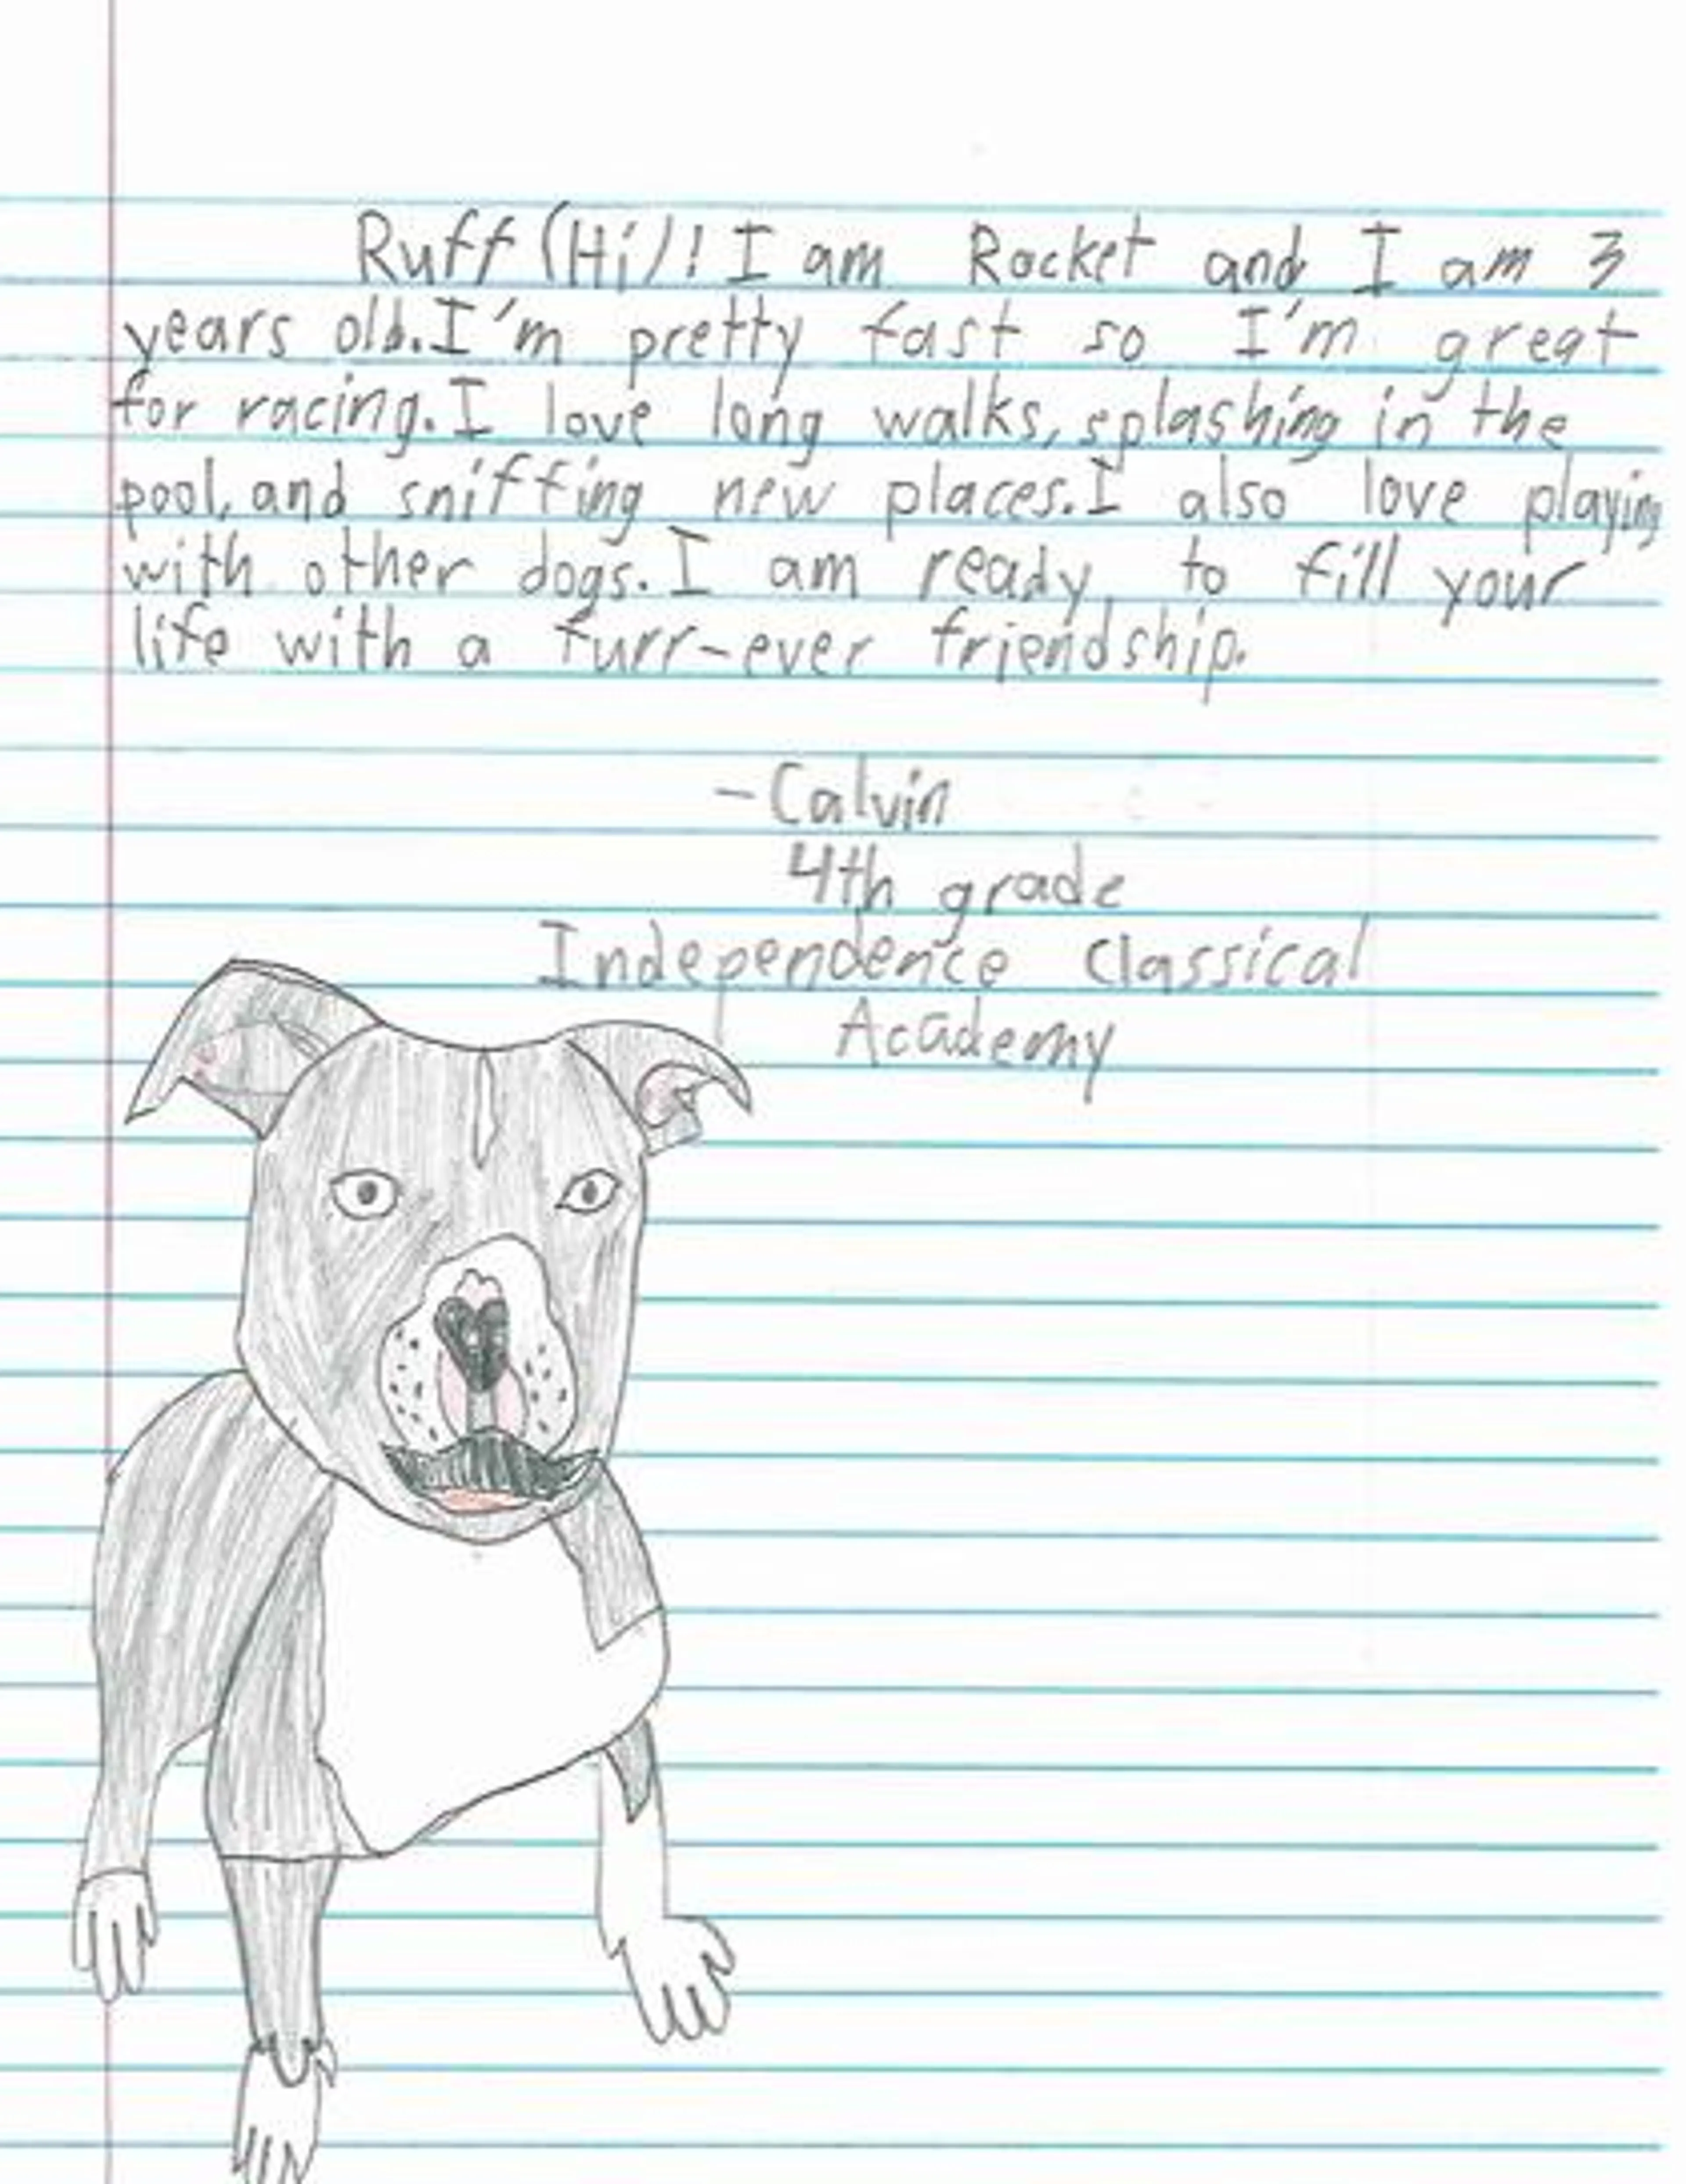 Ruff (Hi)! I am Rocket and I am 3
years old. I'm pretty fast so I'm great
for racing. I love long walks, splashing in the
pool, and sniffing new places. I also love playing
with other dogs. I am ready to fill your
life with a furr-ever friendship.
-Calvin
4th grade
Independence Classical
Academy